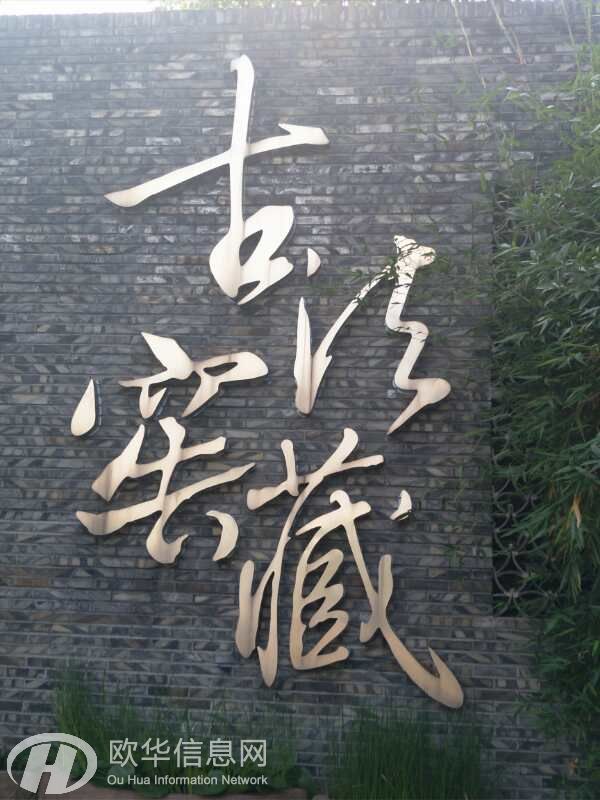 古法
窖藏
欧华信息网
Ou Hua Information Network